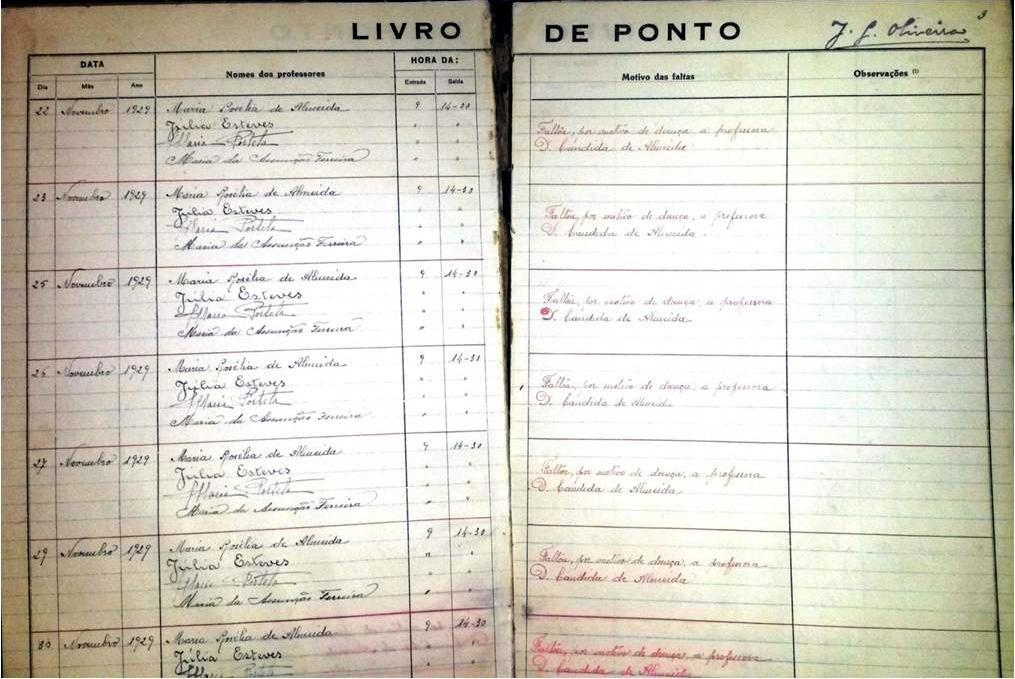 LIVRO DE PONTO
J. G. Oliveira
3
DATA
Nomes dos professores
HORA DA:
Motivo das faltas
Observações (1)
Dia Mês Ano
Entrada Saída
22 Novembro 1929 Maria Rosélia de Almeida 9 14-30
Júlia Esteves " "
Maria Portela " "
Maria da Assunção Ferreira " "
Faltou, por motivo de doença, a professora
D. Cândida de Almeida
23 Novembro 1929 Maria Rosélia de Almeida 9 14-30
Júlia Esteves " "
Maria Portela " "
Maria da Assunção Ferreira " "
Faltou, por motivo de doença, a professora
D. Cândida de Almeida
25 Novembro 1929 Maria Rosélia de Almeida 9 14-30
Júlia Esteves " "
Maria Portela " "
Maria da Assunção Ferreira " "
Faltou, por motivo de doença, a professora
D. Cândida de Almeida
26 Novembro 1929 Maria Rosélia de Almeida 9 14-30
Júlia Esteves " "
Maria Portela " "
Maria da Assunção Ferreira " "
Faltou, por motivo de doença, a professora
D. Cândida de Almeida
27 Novembro 1929 Maria Rosélia de Almeida 9 14-30
Júlia Esteves " "
Maria Portela " "
Maria da Assunção Ferreira " "
Faltou, por motivo de doença, a professora
D. Cândida de Almeida
29 Novembro 1929 Maria Rosélia de Almeida 9 14-30
Júlia Esteves " "
Maria Portela " "
Maria da Assunção Ferreira " "
Faltou, por motivo de doença, a professora
D. Cândida de Almeida
30 Novembro 1929 Maria Rosélia de Almeida 9 14-30
Júlia Esteves " "
Maria
Faltou, por motivo de doença, a professora
D. Cândida de Almeida